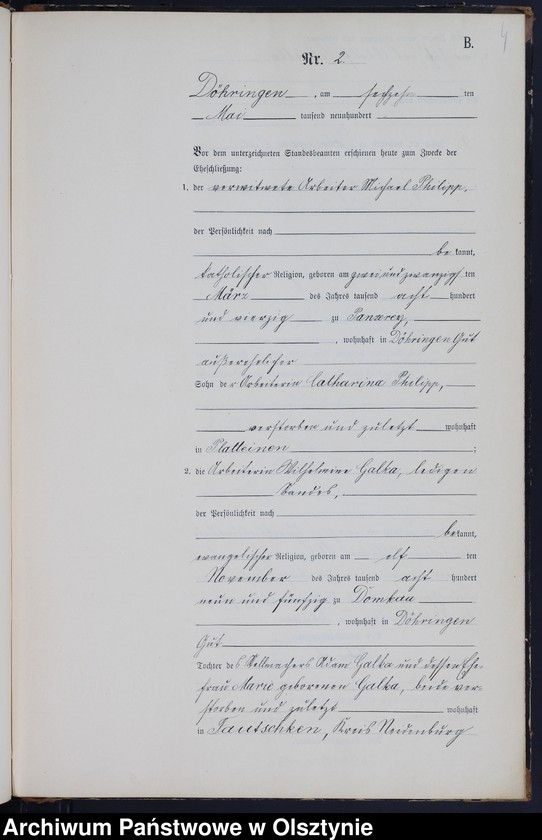 B.
4
Nr. 2
Döhringen, am sechzehnten
Mai tausend neunhundert
Vor dem unterzeichneten Standesbeamten erschienen heute zum Zwecke der
Eheschließung:
1. der verwitwete Arbeiter Michael Philipp,
der Persönlichkeit nach
bekannt,
katholischer Religion, geboren am zwei und zwanzigsten
März des Jahres tausend acht hundert
und vierzig zu
, wohnhaft in Döhringen Gut
außerehelicher
Sohn der Arbeiterin Catharina Philipp,
verstorben und zuletzt wohnhaft
in Platteinen ;
2. die Arbeiterin Wilhelmine Galka, ledigen
Standes,
der Persönlichkeit nach
bekannt,
evangelischer Religion, geboren am elf ten
November des Jahres tausend acht hundert
neun und fünfzig zu Domkau
, wohnhaft in Döhringen
Gut
Tochter des Stellmachers Adam Galka und dessen Ehe-
frau Marie geborenen Galka, beide ver-
storben und zuletzt wohnhaft
in Tautschken, Kreis Neidenburg
Archiwum Państwowe w Olsztynie